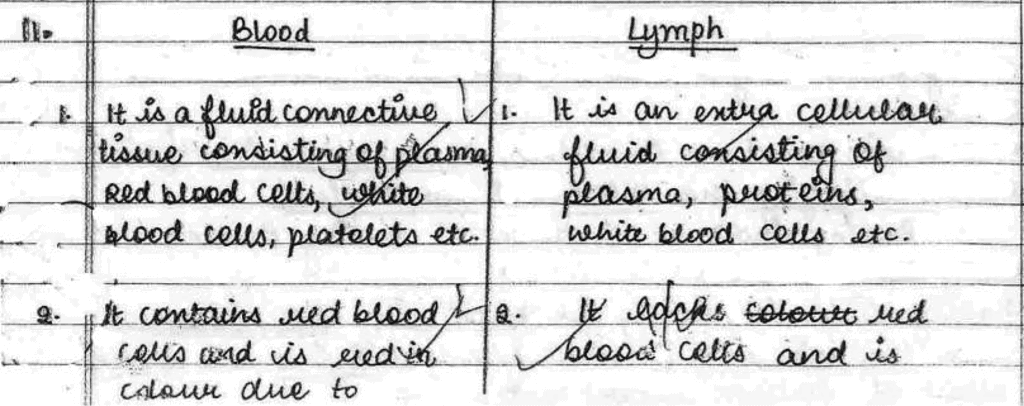 11. Blood Lymph
1. It is a fluid connective 1. It is an extra cellular
tissue consisting of plasma, fluid consisting of
red blood cells, white plasma, proteins,
blood cells, platelets etc. white blood cells etc.
2. It contains red blood 2. It lacks colour red
cells and is red in blood cells and is
colour due to